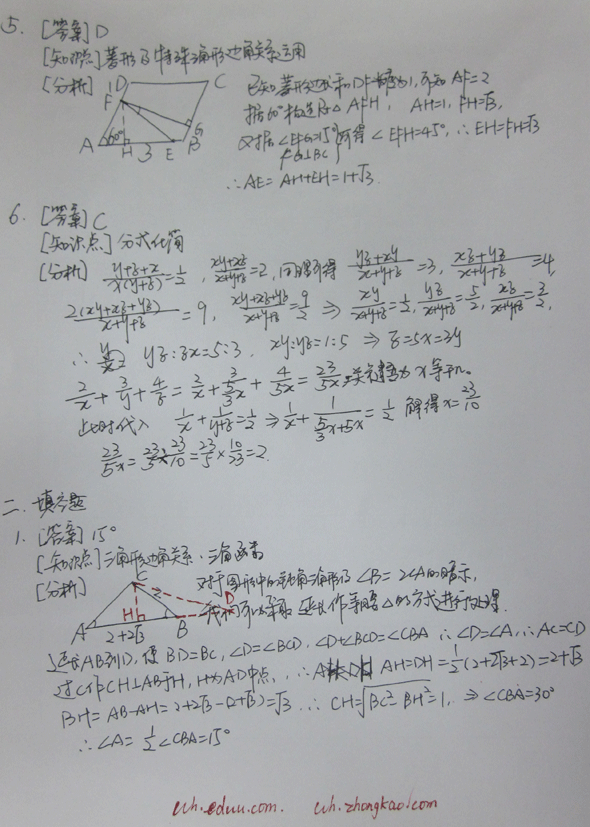 5. [答案] D
[知识点] 菱形及特殊三角形边角关系运用
[分析]
D C F 60° A H 3 E B G
已知菱形边长和DF长为1,可知 AF=2
据60°构造Rt△AFH, AH=1, FH=√3,
又据∠EFG=15° FG⊥BC 可得∠EFH=45°, ∴EH=FH=√3
∴AE=AH+EH=1+√3.
6. [答案] C
[知识点] 分式化简
[分析] (y+z+x)/(x(y+z))=1/2, (xy+xz)/(x+y+z)=2, 同时可得 (yz+xy)/(x+y+z)=3, (xz+yz)/(x+y+z)=4,
2(xy+xz+yz)/(x+y+z)=9, (xy+xz+yz)/(x+y+z)=9/2 ⇒ xy/(x+y+z)=1/2, yz/(x+y+z)=5/2, xz/(x+y+z)=3/2,
∴ yz:zx=5:3, xy:yz=1:5 ⇒ z=5x=3y
2/x+3/y+4/z=2/x+3/(5/3x)+4/5x=23/5x, 关键为x等于几。
此时代入 1/x+1/(y+z)=1/2 ⇒ 1/x+1/(5/3x+5x)=1/2 解得x=23/10
23/5x=23/5×10/23=2.
二. 填空题
1. [答案] 15°
[知识点] 三角形边角关系、三角函数
[分析]
C H D A 2+2√3 B 2
对于图形中的三角形的∠B=2∠A的暗示,
我们可以采取延长作等腰△的方式进行处理.
延长AB到D, 使BD=BC, ∠D=∠BCD, ∠D+∠BCD=∠CBA ∴∠D=∠A, ∴AC=CD
过C作CH⊥AB于H, H为AD中点, ∴AH=DH=1/2(2+2√3+2)=2+√3
BH=AB-AH=2+2√3-(2+√3)=√3 ∴CH=√(BC²-BH²)=1, ⇒∠CBA=30°
∴∠A=1/2∠CBA=15°
wh.eduu.com. wh.zhongkao.com